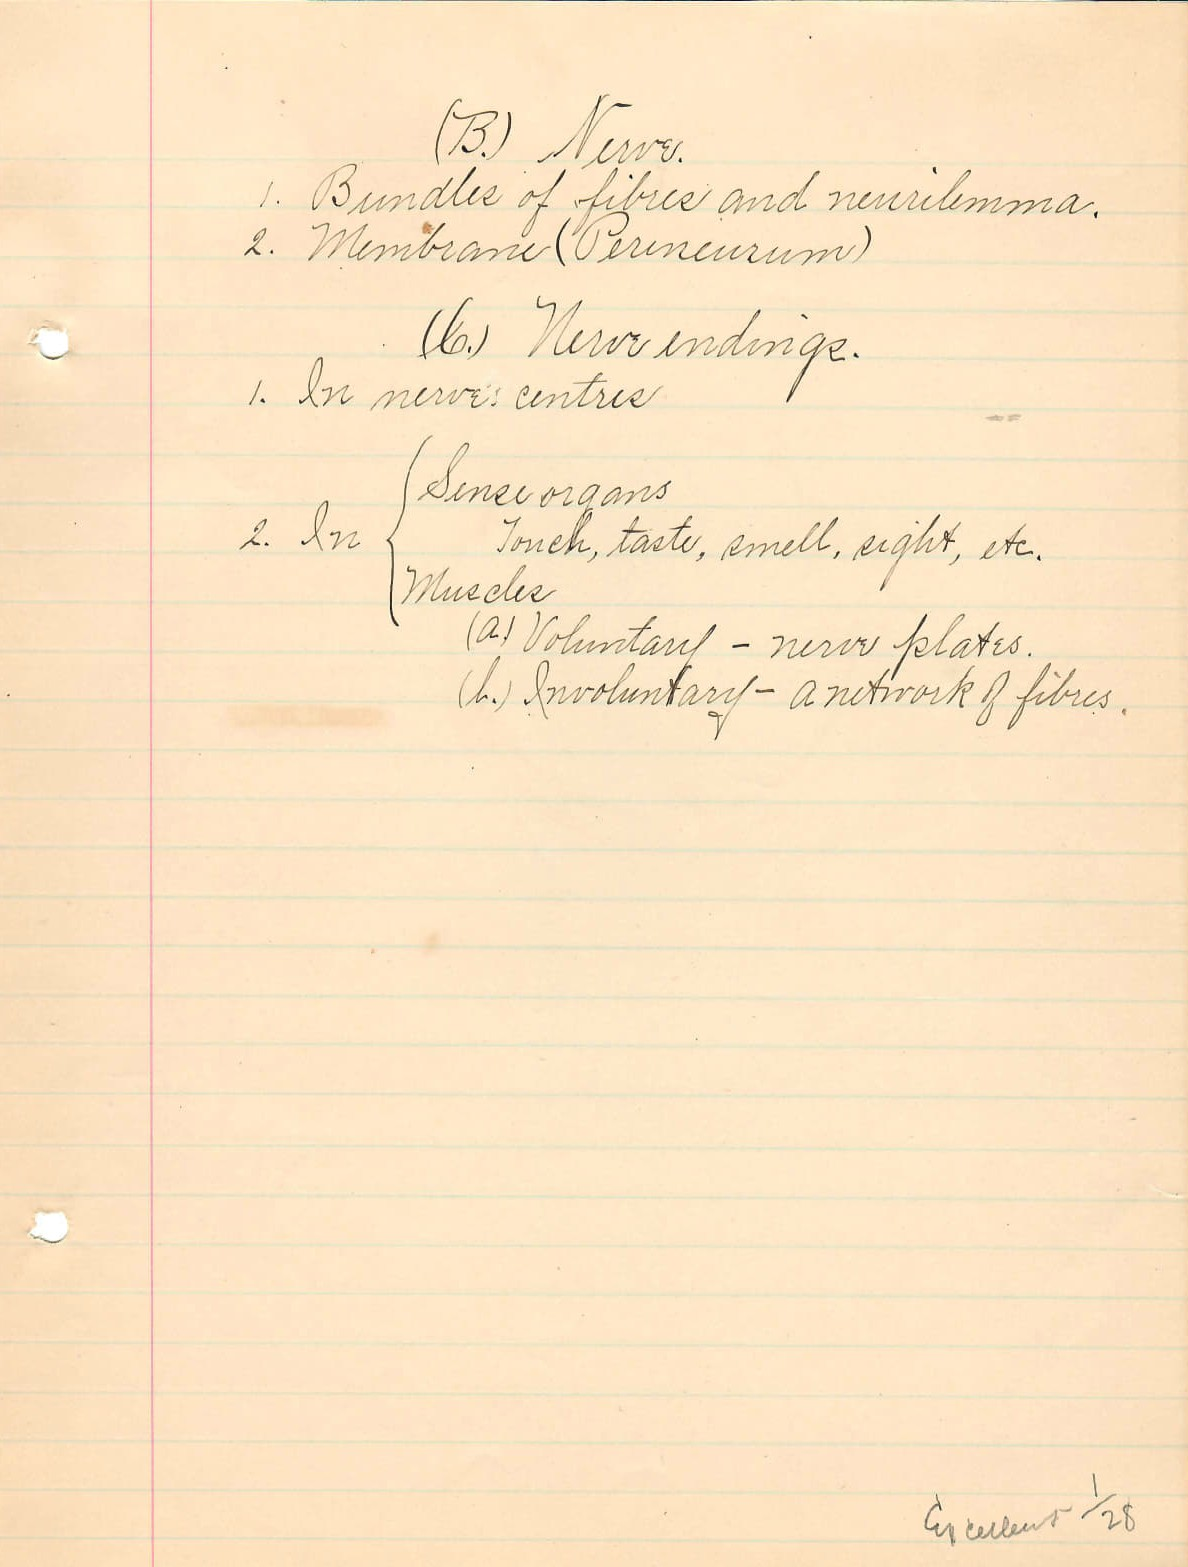 (B.) Nerve.
1. Bundles of fibres and neurilemma.
2. Membrane (Perineurum)
(C.) Nerve endings.
1. In nerve centres
Sense organs
2. In
Touch, taste, smell, sight, etc.
Muscles
(a.) Voluntary - nerve plates.
(b.) Involuntary - a network of fibres.
Excellent 1/28